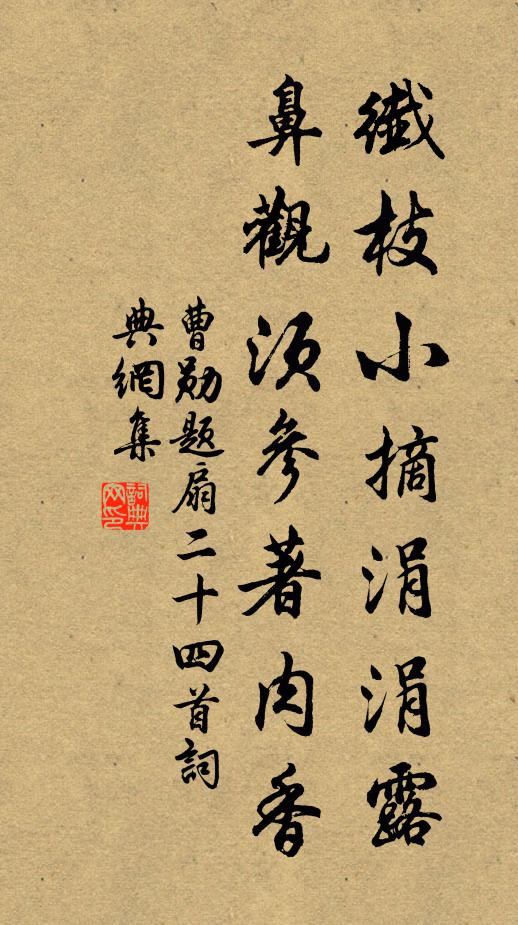 纖枝小摘涓涓露
鼻觀須參著肉香
曹勛題扇二十四首詞
典網集
詞典網印